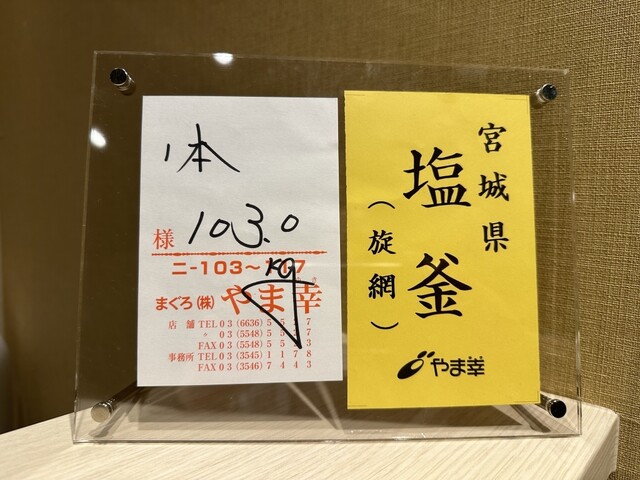 1本
様 103.0
kg
二-103~107
まぐろ(株) やま幸
店舗 TEL 03 (6636)
〃 03 (5548)
FAX 03 (5548)
事務所 TEL 03 (3545) 1178
FAX 03 (3546) 7443
宮城県
塩釜
(旋網)
やま幸